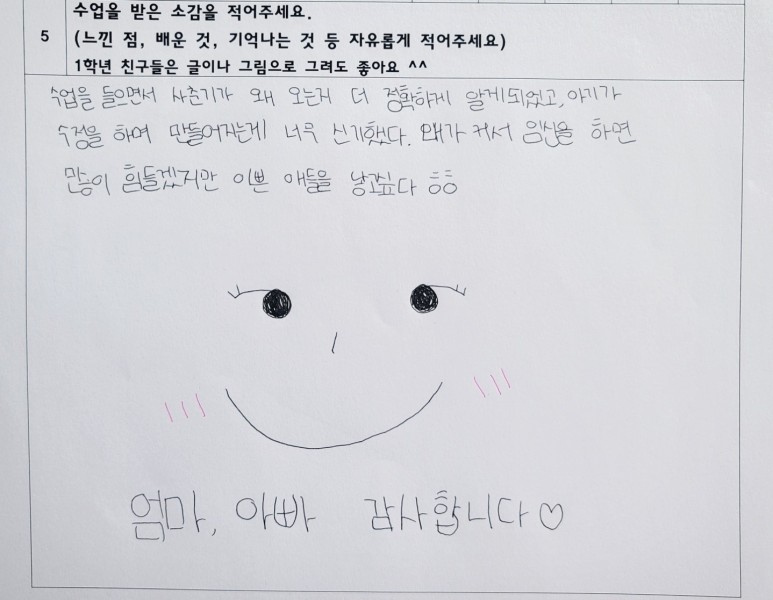 수업을 받은 소감을 적어주세요.
5
(느낀 점, 배운 것, 기억나는 것 등 자유롭게 적어주세요)
1학년 친구들은 글이나 그림으로 그려도 좋아요 ^^
수업을 들으면서 사춘기가 왜 오는지 더 정확하게 알게되었고, 아기가
수정을 하여 만들어지는게 너무 신기했다. 커서 임신을 하면
많이 힘들겠지만 이쁜 애들을 낳고싶다 ㅎㅎ
엄마, 아빠 감사합니다♡